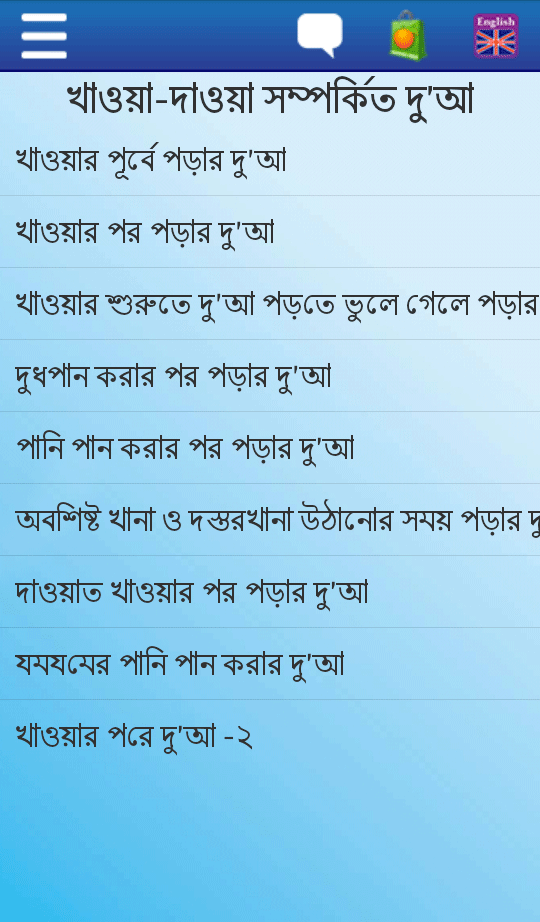 English
খাওয়া-দাওয়া সম্পর্কিত দু'আ
খাওয়ার পূর্বে পড়ার দু'আ
খাওয়ার পর পড়ার দু'আ
খাওয়ার শুরুতে দু'আ পড়তে ভুলে গেলে পড়ার
দুধপান করার পর পড়ার দু'আ
পানি পান করার পর পড়ার দু'আ
অবশিষ্ট খানা ও দস্তরখানা উঠানোর সময় পড়ার দু
দাওয়াত খাওয়ার পর পড়ার দু'আ
যমযমের পানি পান করার দু'আ
খাওয়ার পরে দু'আ -২